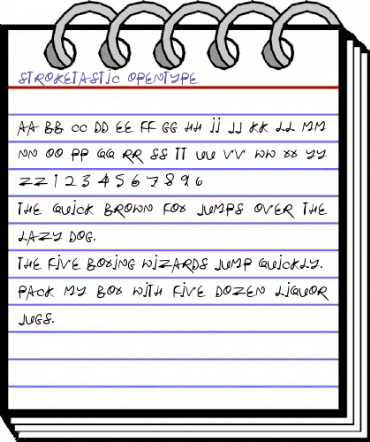 STROKETASTIC OPENTYPE
AA BB CC DD EE FF GG HH II JJ KK LL MM
NN OO PP QQ RR SS TT UU VV WW XX YY
ZZ 1 2 3 4 5 6 7 8 9 6
THE QUICK BROWN FOX JUMPS OVER THE
LAZY DOG.
THE FIVE BOXING WIZARDS JUMP QUICKLY.
PACK MY BOX WITH FIVE DOZEN LIQUOR
JUGS.